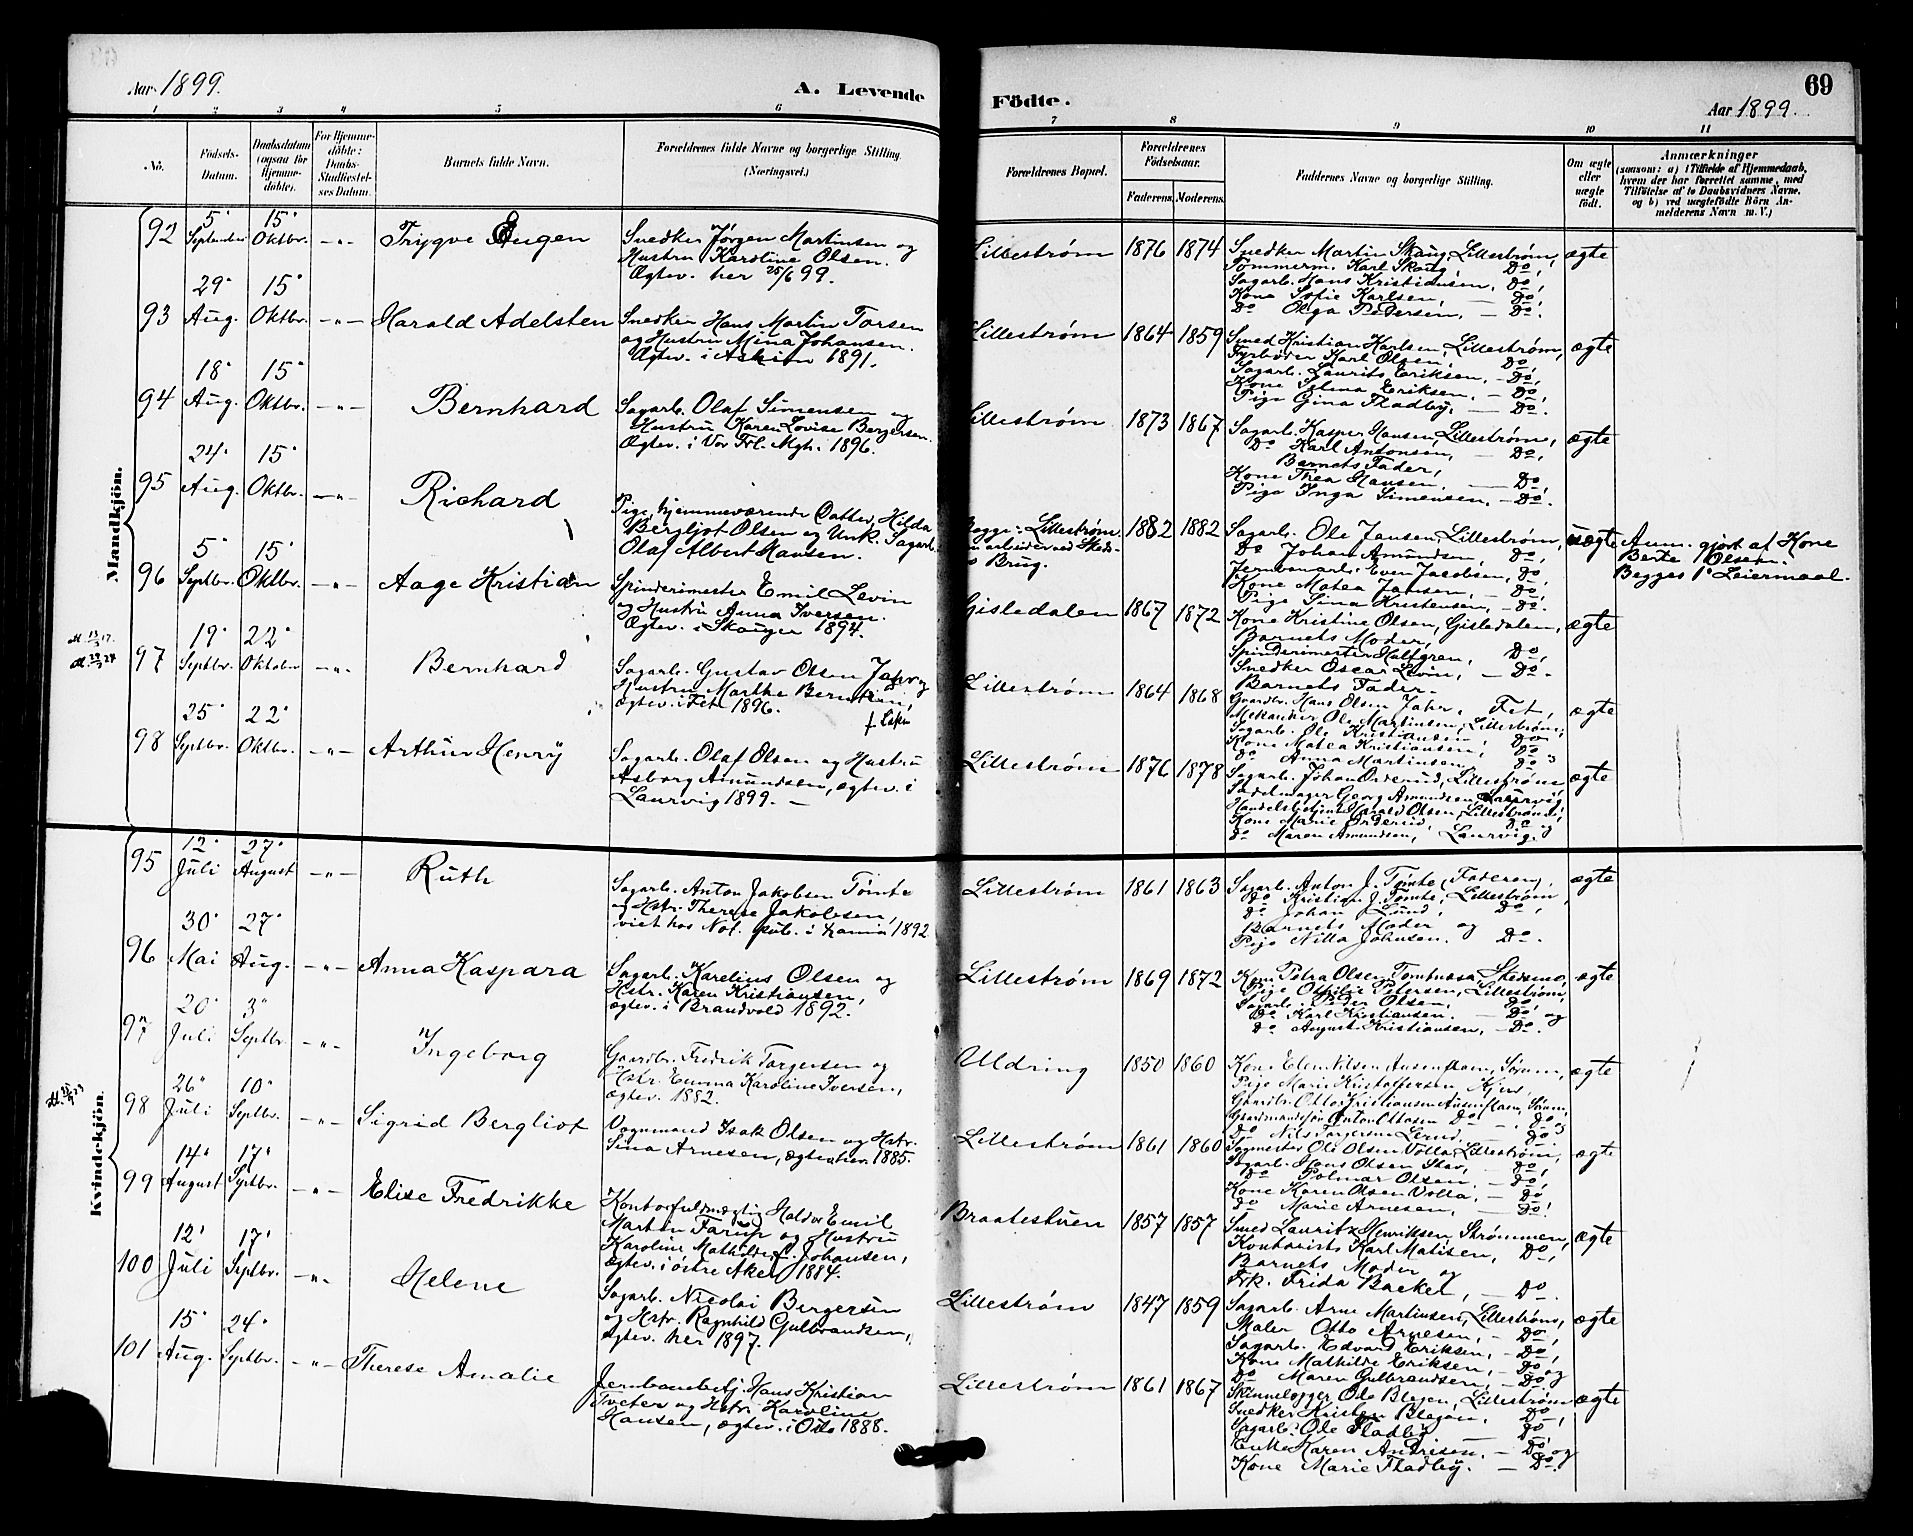 Aar 1899.
A. Levende
1 2 3 4 5 6
No.
Födsels-Datum.
Daabsdatum (ogsaa for Hjemmedöbte).
For Hjemmedöbte: Daabs-Stadfæstelses Datum.
Barnets fulde Navn.
Forældrenes fulde Navne og borgerlige Stilling. (Næringsvei.)
Mandkjön.
92 5' September 15' Oktbr. -"- Trygve Eugen
Snedker Jørgen Martinsen og
Hustru Karoline Olsen.
Ægtev. her 25/6 99.
93 29' Aug. 15' Oktbr. -"- Harald Adelsten
Snedker Hans Martin Torsen
og Hustru Mina Johansen.
Ægtev. i Askim 1891.
94 18' Aug. 15' Oktbr. -"- Bernhard
Sagarb. Olaf Simensen og
Hustru Karen Lovise Bergersen.
Ægtev. i Vor Frl. Mgh. 1896.
95 24' Aug. 15' Oktbr. -"- Richard
Pige, hjemmeværende Datter, Hilda
Bergljot Olsen og Unk. Sagarb.
Olaf Albert Hansen.
96 5' Septbr. 15' Oktbr. -"- Aage Kristian
Spinderimester Emil Levin
og Hustru Anna Iversen.
Ægtev. i Skouger 1894.
97 19' Septbr. 22' Oktober -"- Bernhard
Sagarb. Gustav Olsen Jahr og
Hustru Marthe
ægtev. i Fet 1896.
98 25' Septbr. 22' Oktbr. -"- Arthur Henry
Sagarb. Olaf Olsen og Hustru
Asborg Amundsen, ægtev. i
Laurvig 1899. —
Kvindekjön.
95 12' Juli 27' August -"- Ruth
Sagarb. Anton Jakobsen Tømte
og Hstr. Therese Jakobsen,
viet hos Not. pub. i 1892.
96 30' Mai 27' Aug. -"- Anna Kaspara
Sagarb. Karelius Olsen og
Hstr. Karen Kristiansen,
ægtev. i Brandvold 1892.
97 20' Juli 3" Septbr. -"- Ingeborg
Gaardbr. Fredrik Torgersen og
Hstr. Emma Karoline Iversen,
ægtev. 1882.
98 26" Juli 10" Septbr. -"- Sigrid Bergliot
Vognmand Isak Olsen og Hstr.
Sina Arnesen, ægtev. her. 1885.
99 14" August 17" Septbr. -"- Elise Fredrikke
Kontorfuldmægtig Emil
Martin Farup og Hustru
Karoline Mathilde f. Johansen,
ægtev. i østre Aker 1884.
100 12' Juli 17' Septbr. -"- Helene
Sagarb. Nicolai Bergersen
og Hstr. Ragnhild Gulbrandsen,
ægtev. her 1897.
101 15' Aug. 24' Septbr. -"- Therese Amalie
Jernbanebetj. Hans Kristian
Tveter og Hstr. Karoline
Hansen, ægtev. i Oslo 1888.
Födte.
69
Aar 1899.
7 8 9 10 11
Forældrenes Bopæl.
Forældrenes Födselsaar.
Faderens. Moderens.
Faddernes Navne og borgerlige Stilling.
Om ægte eller uægte födt.
Anmærkninger
(saasom: a) i Tilfælde af Hjemmedaab, hvem der har forrettet samme, med Tilföielse af to Daabsvidners Navne, og b) ved uægtefödte Börn Anmelderens Navn m. V.)
Lillestrøm 1876 1874
Snedker Martin Skaug, Lillestrøm, ægte
Tømmerm. Karl Skaug, Do,
Sagarb. Hans Kristiansen, Do,
Kone Sofie Karlsen, — Do,
Do Olga Pedersen, — Do.
Lillestrøm 1864 1859
Smed Kristian Karlsen, Lillestrøm, ægte
Fyrbøder Karl Olsen, Do,
Sagarb. Laurits Eriksen, — Do,
Kone Selma Eriksen, — Do,
Pige Gina Fladby, — Do.
Lillestrøm 1873 1867
Sagarb. Kasper Hansen, Lillestrøm, ægte
Do Karl Antonsen, — Do,
Barnets Fader,
Kone Thea Hansen, — Do,
Pige Inga Simensen, — Do.
Begge: Lillestrøm 1882 1882
arbeider ved
Brug.
Sagarb. Ole Jansen, Lillestrøm, uægte
Do Johan Amundsen Do,
Jernbanearb. Even Jacobsen, Do,
Kone Matea Jansen, — Do,
Pige Sina Kristensen, — Do.
Anm. gjort af Kone
Berte Olsen.
Begges 1' Leiermaal.
Gisledalen 1867 1872
Kone Kristine Olsen, Gisledalen, ægte
Barnets Moder,
Spinderimester Hallgren, Do,
Snedker Oscar Levin, — Do.
Barnets Fader.
Lillestrøm 1864 1868
Gaardbr. Hans Olsen Jahr, Fet, ægte
Mekaniker Ole Martinsen, Lillestrøm,
Sagarb. Ole Kristiansen, Do
Kone Matea Kristiansen, Do
Do Anna Martinsen, Do
Lillestrøm 1876 1878
Sagarb. Johan Orderud, Lillestrøm, ægte
Sadelmager Georg Amundsen, Laurvig,
Handelsbetjent Harald Olsen, Lillestrøm,
Kone Marie Orderud, Do og
Do Maren Amundsen, Laurvig.
Lillestrøm 1861 1863
Sagarb. Anton J. Tømte (Faderen), ægte
Do Kristian J. Tømte, Lillestrøm,
Do Johan Lund, Do,
Barnets Moder og
Pige Nilla Johnsen. Do.
Lillestrøm 1869 1872
Kone Petra Olsen, Skedsmo, ægte
Pige Othilie Petersen, Lillestrøm,
Sagarb. Peder Olsen, Do,
Do Karl Kristiansen. — Do, og
Do August Kristiansen, — Do.
Uldring 1850 1860
Kone Elen Nilsen Sørum, ægte
Pige Marie Kristoffersen,
Gaardbr. Otto Kristiansen Sørum,
Gaardmandssøn Anton Ottosen Do — Do og
Do Nils Torgersen — Do
Lillestrøm 1861 1860
Sagmester Ole Olsen Volla, Lillestrøm, ægte
Sagarb. Hans Olsen — Do,
Do Polmar Olsen, — Do,
Kone Karen Olsen Volla, — Do
Do Marie Arnesen, — Do.
Braatestuen 1857 1857
Smed Lauritz Henriksen, Strømmen, ægte
Kontorist Karl Matisen, Do,
Barnets Moder og
Frk. Frida Backer, — Do.
Lillestrøm 1847 1859
Sagarb. Arne Martinsen, Lillestrøm, ægte
Maler Otto Arnesen, — Do,
Sagarb. Edvard Eriksen, — Do,
Kone Mathilde Eriksen, — Do, og
Do Maren Gulbrandsen, — Do
Lillestrøm 1861 1867
Skinnelægger Ole Blegen, Lillestrøm ægte
Snedker Kristen Blegen, Do,
Sagarb. Ole Fladby — Do,
Enke Karen Andresen, — Do og
Kone Marie Fladby. — Do.